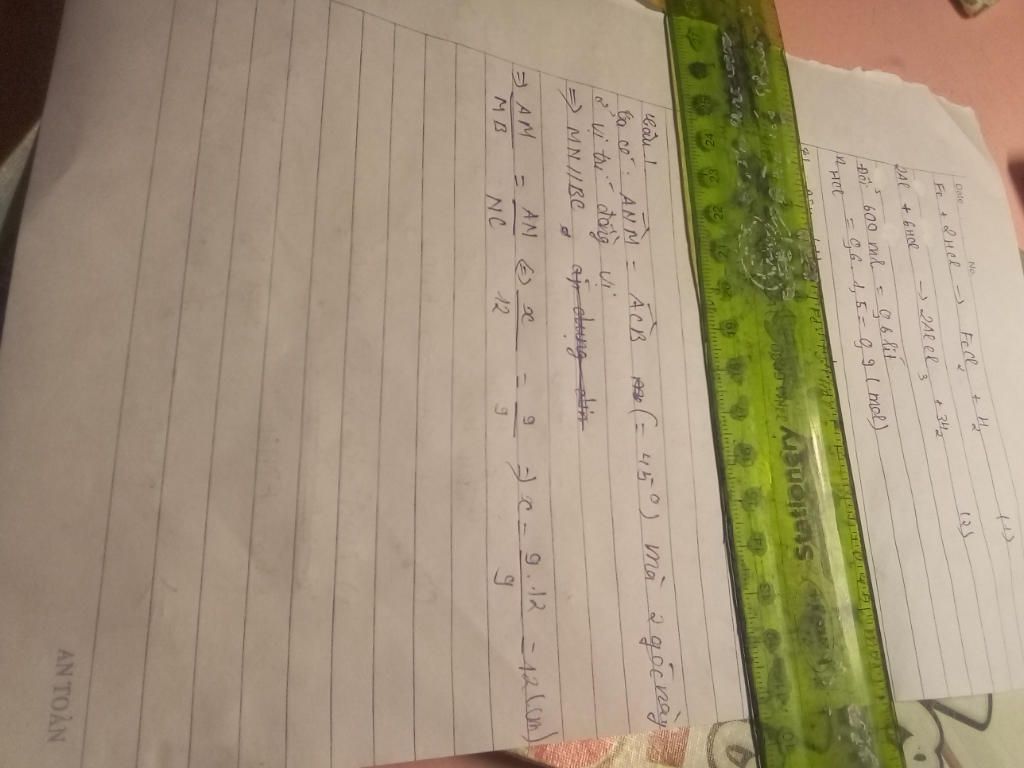 Date
No.
Fe + 2HCl → FeCl2 + H2 (1)
2Al + 6HCl → 2AlCl3 + 3H2 (2)
Đổi 600 ml = 0,6 lít
nHCl = 0,6.1,5 = 0,9 (mol)
Shuangmeng
Câu 1
Ta có: ANM = ACB (= 45°) mà 2 góc này
ở vị trí đồng vị
=> MN//BC áp dụng
=> AM/MB = AN/NC <=> x/12 = 9/9 => x = 9.12/9 = 12 (cm)
AN TOÀN